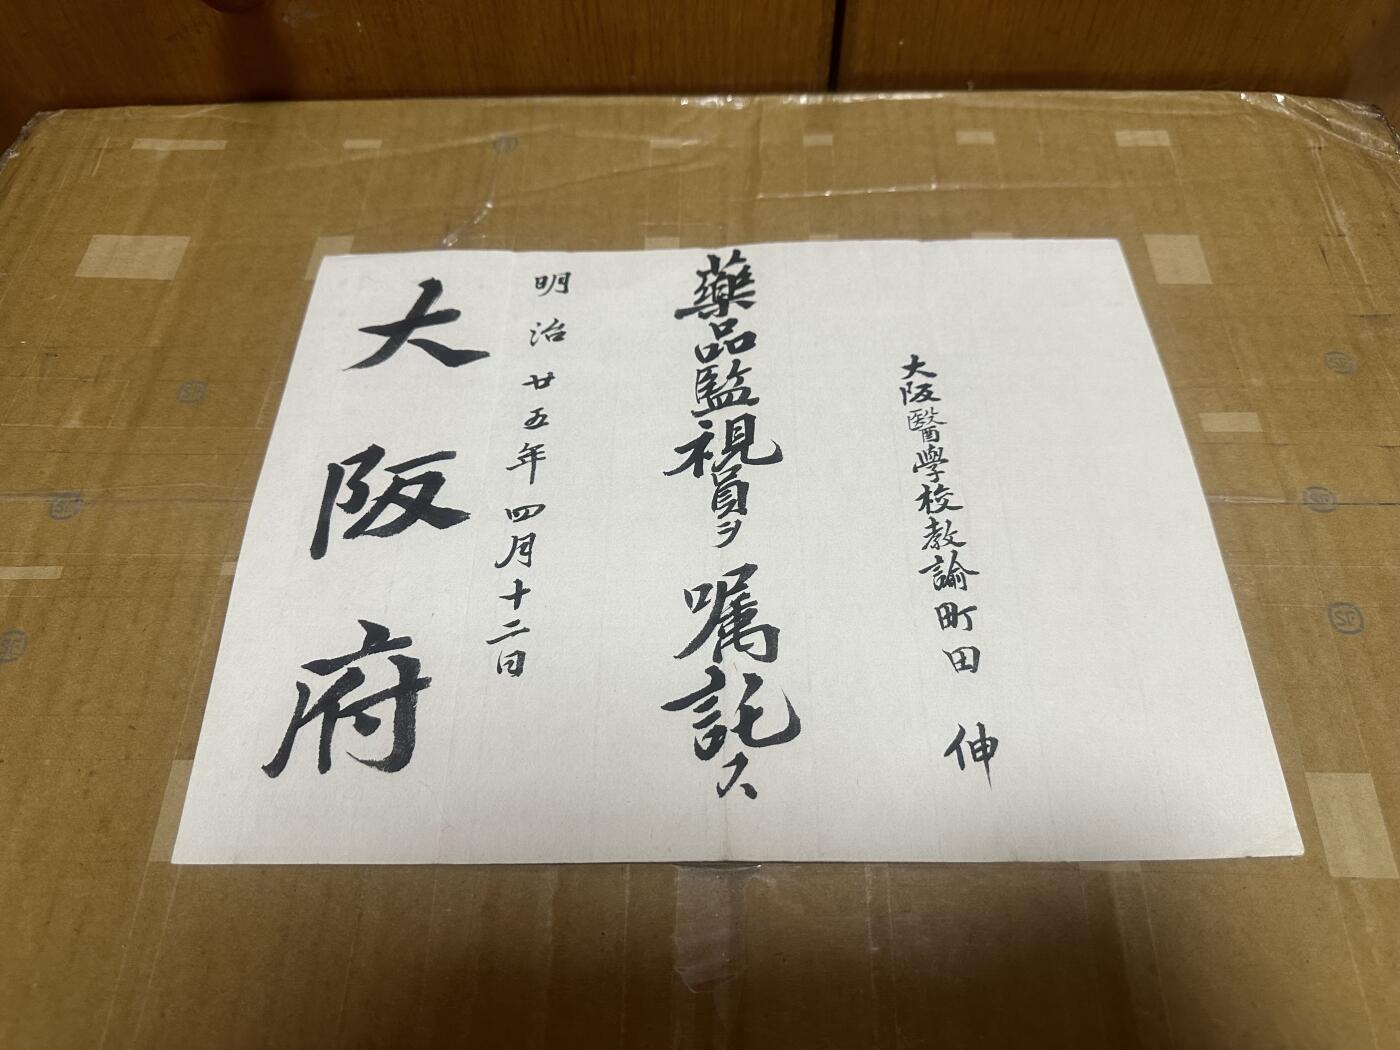 大阪醫學校教諭町田伸
藥品監視員ヲ嘱託ス
明治廿五年四月十二日
大阪府